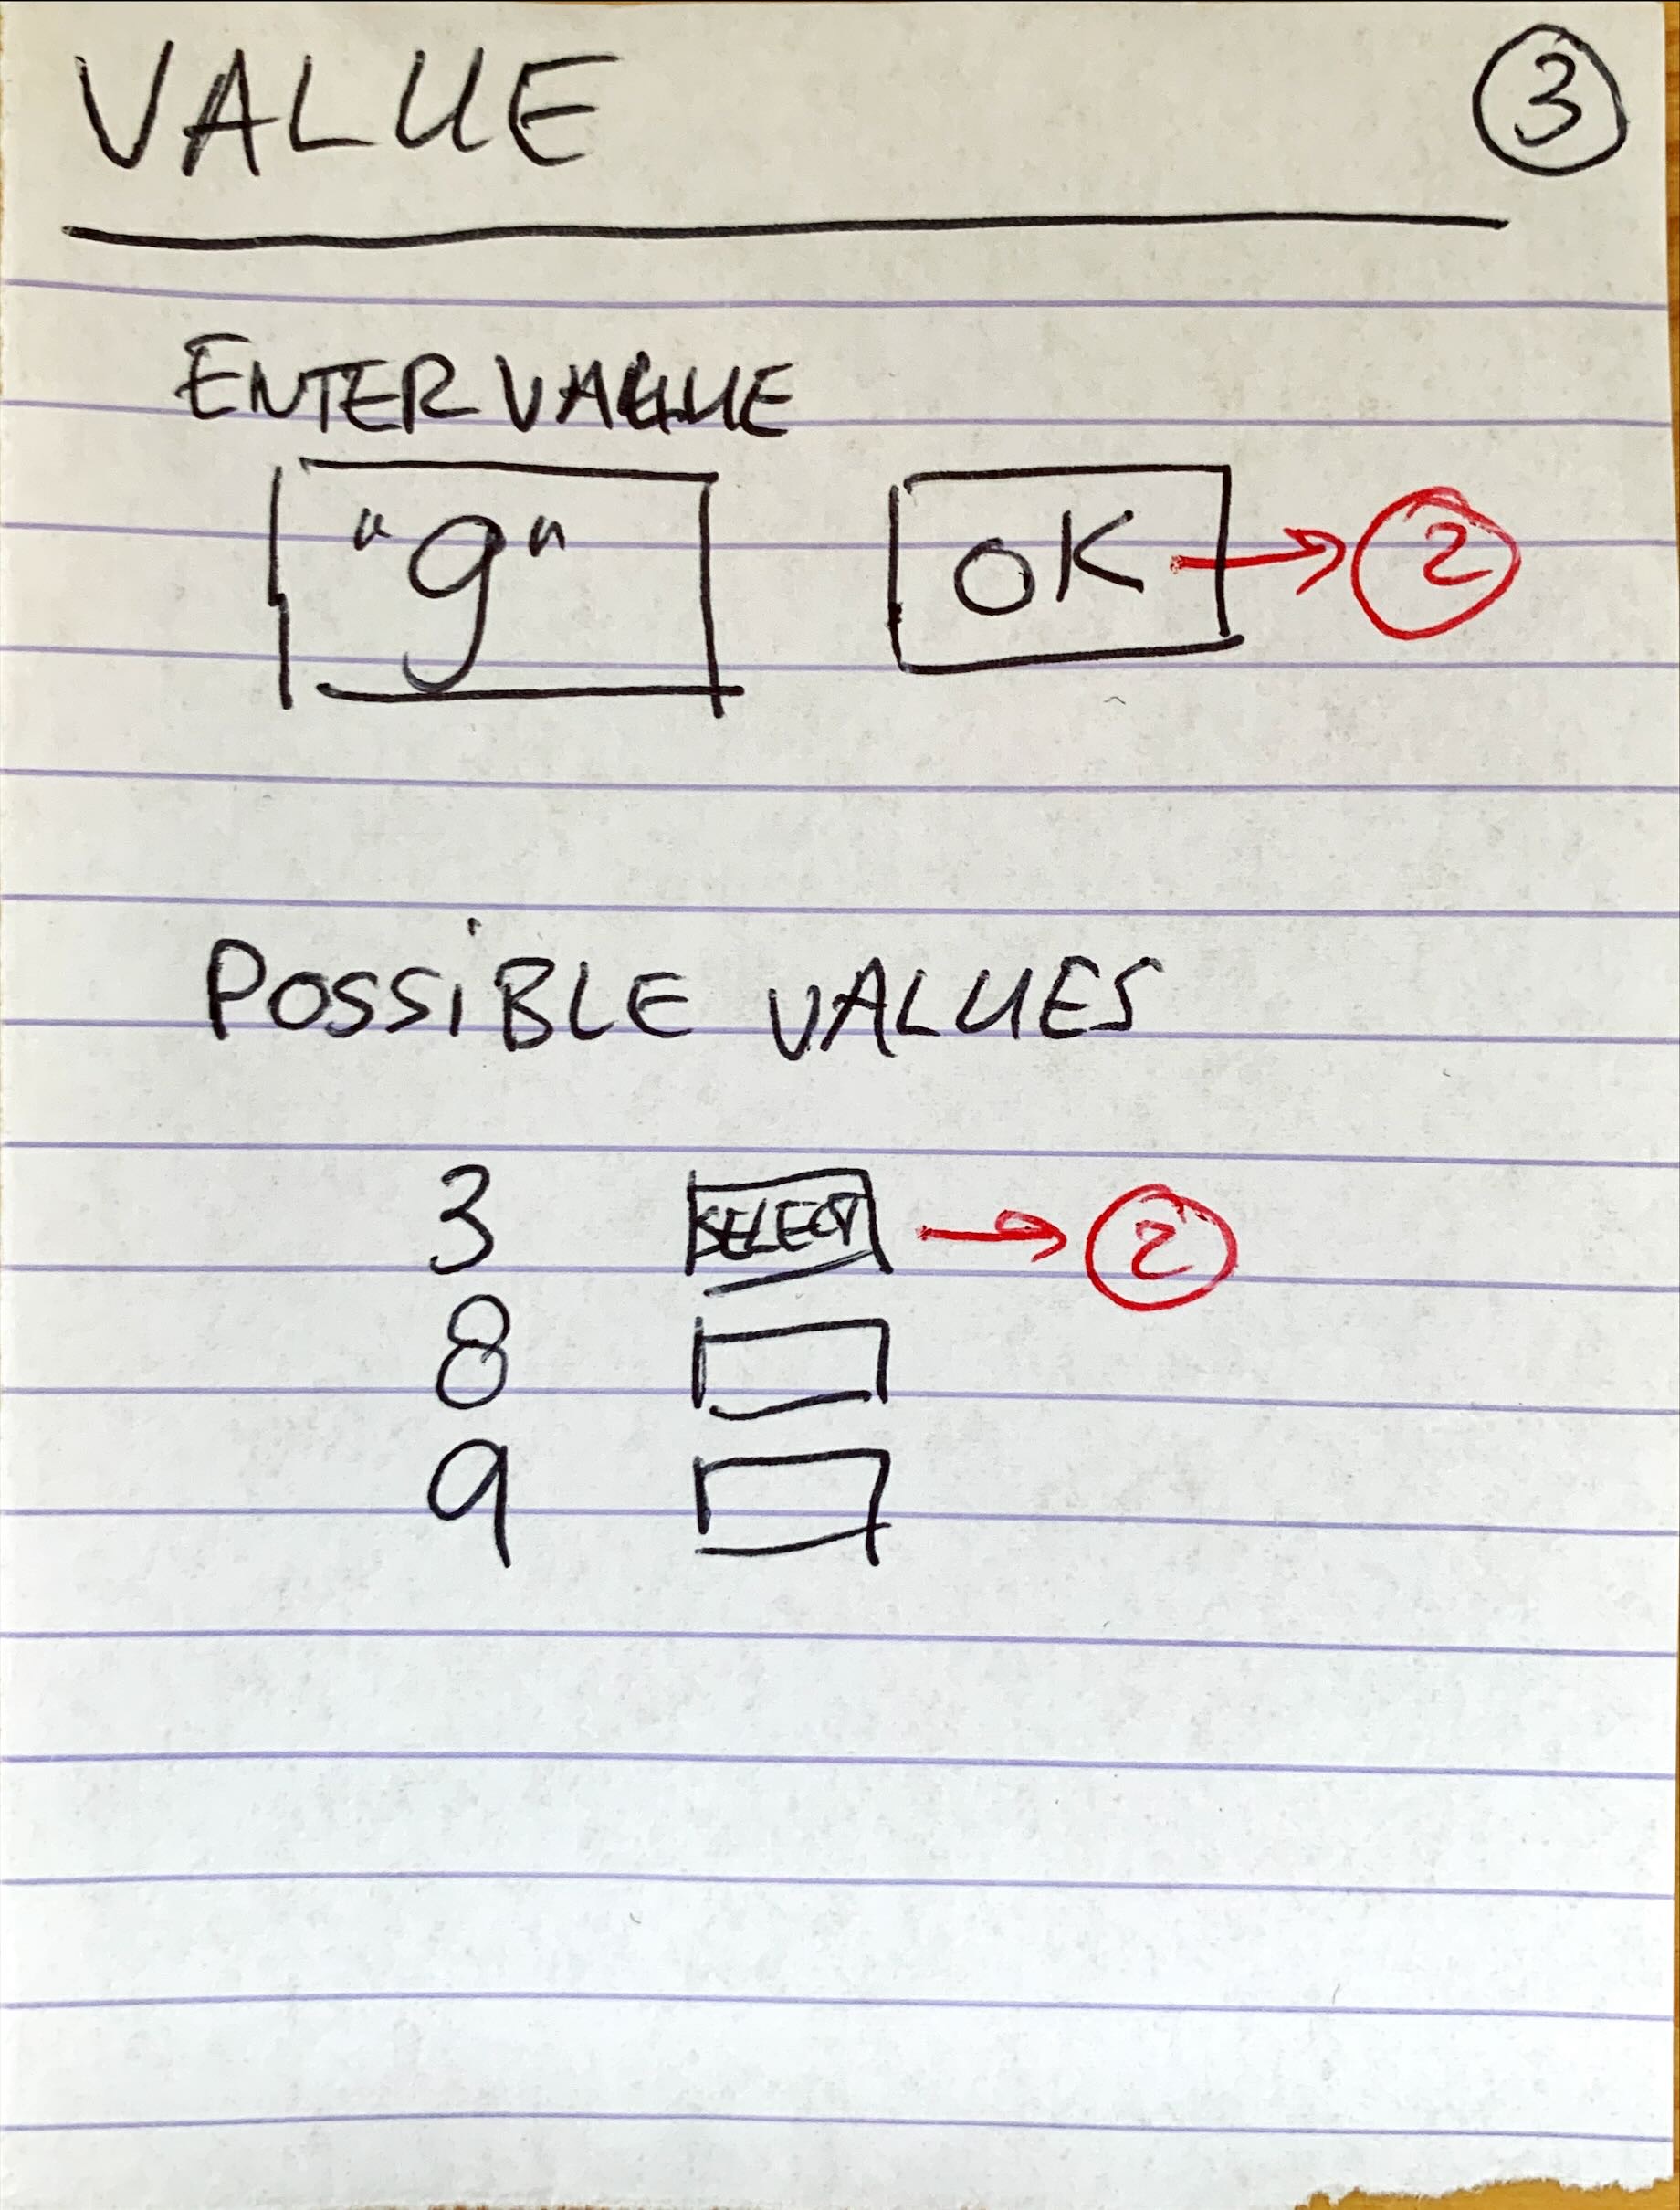 VALUE 3
ENTER VALUE
"9" OK → 2
POSSIBLE VALUES
3 SELECT → 2
8
9